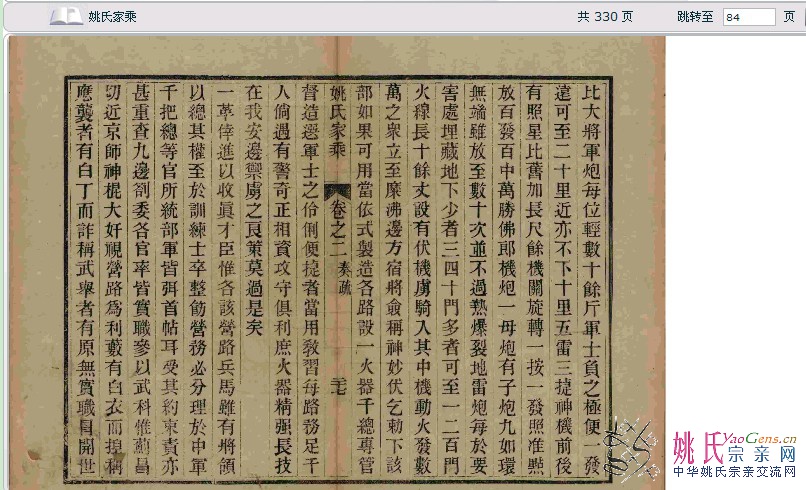 姚氏家乘
共 330 页
跳转至 84 页
比大將軍炮每位輕數十餘斤軍士負之極便一發
遠可至二十里近亦不下十里五雷三捷神機前後
有照星比舊加長尺餘機關旋轉一按一發照准㸃
放百發百中萬勝佛郎機炮一母炮有子炮九如環
無端雖放至數十次並不過熟爆裂地雷炮每於要
害處埋藏地下少者三四十門多者可至一二百門
火線長十餘丈設有伏機虜騎入其中機動火發數
萬之衆立至糜沸邊方宿將僉稱神妙伏乞勅下該
部如果可用當依式製造各路設一火器千總專管
姚氏家乘
卷之二 奏疏
督造選軍士之伶俐便捷者當用敎習每路務足千
人倘遇有警奇正相資攻守俱利庶火器精强長技
在我安邊禦虜之良策莫過是矣
一革倖進以收眞才臣惟各該營路兵馬雖有將領
以總其權至於訓練士卒整飭營務必分理於中軍
千把總等官所統部軍皆弭首帖耳受其約束責亦
甚重查九邊劄委各官率皆實職參以武科惟薊昌
切近京師神棍大奸視營路爲利藪有白衣而揑稱
應襲者有白丁而詐稱武舉者有原無實職冐開世
姚氏宗亲网
YaoGens.cn
中华姚氏宗亲交流网